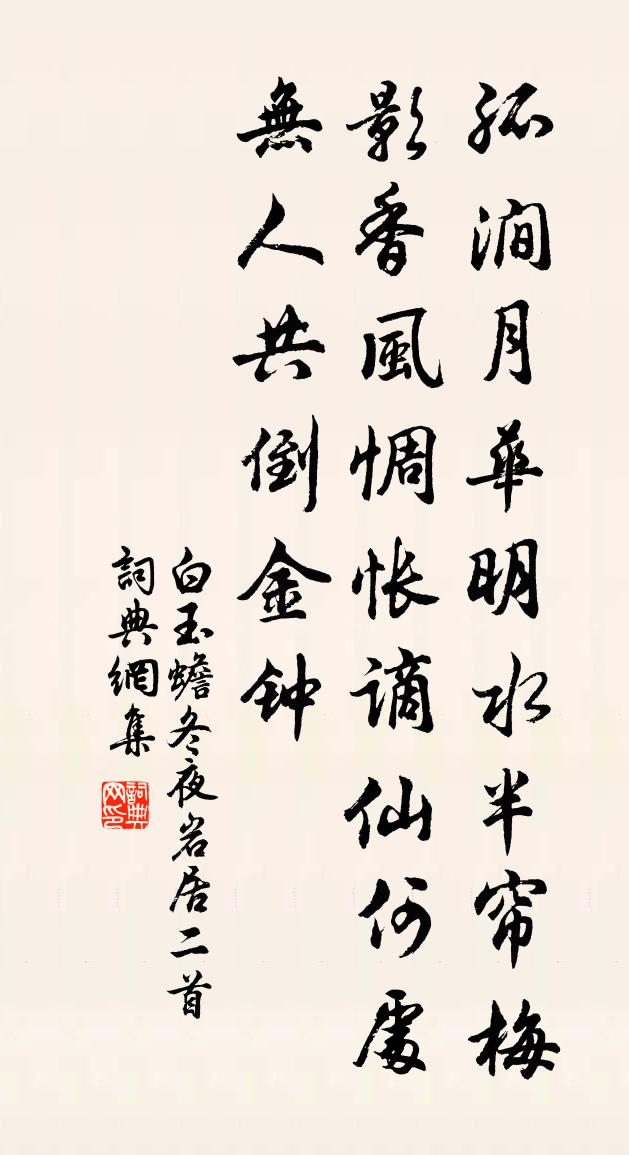 孤澗月華明水半帘梅
影香風惆怅谪仙何處
無人共倒金钟
白玉蟾冬夜岩居二首
詞典網集
詞典网印